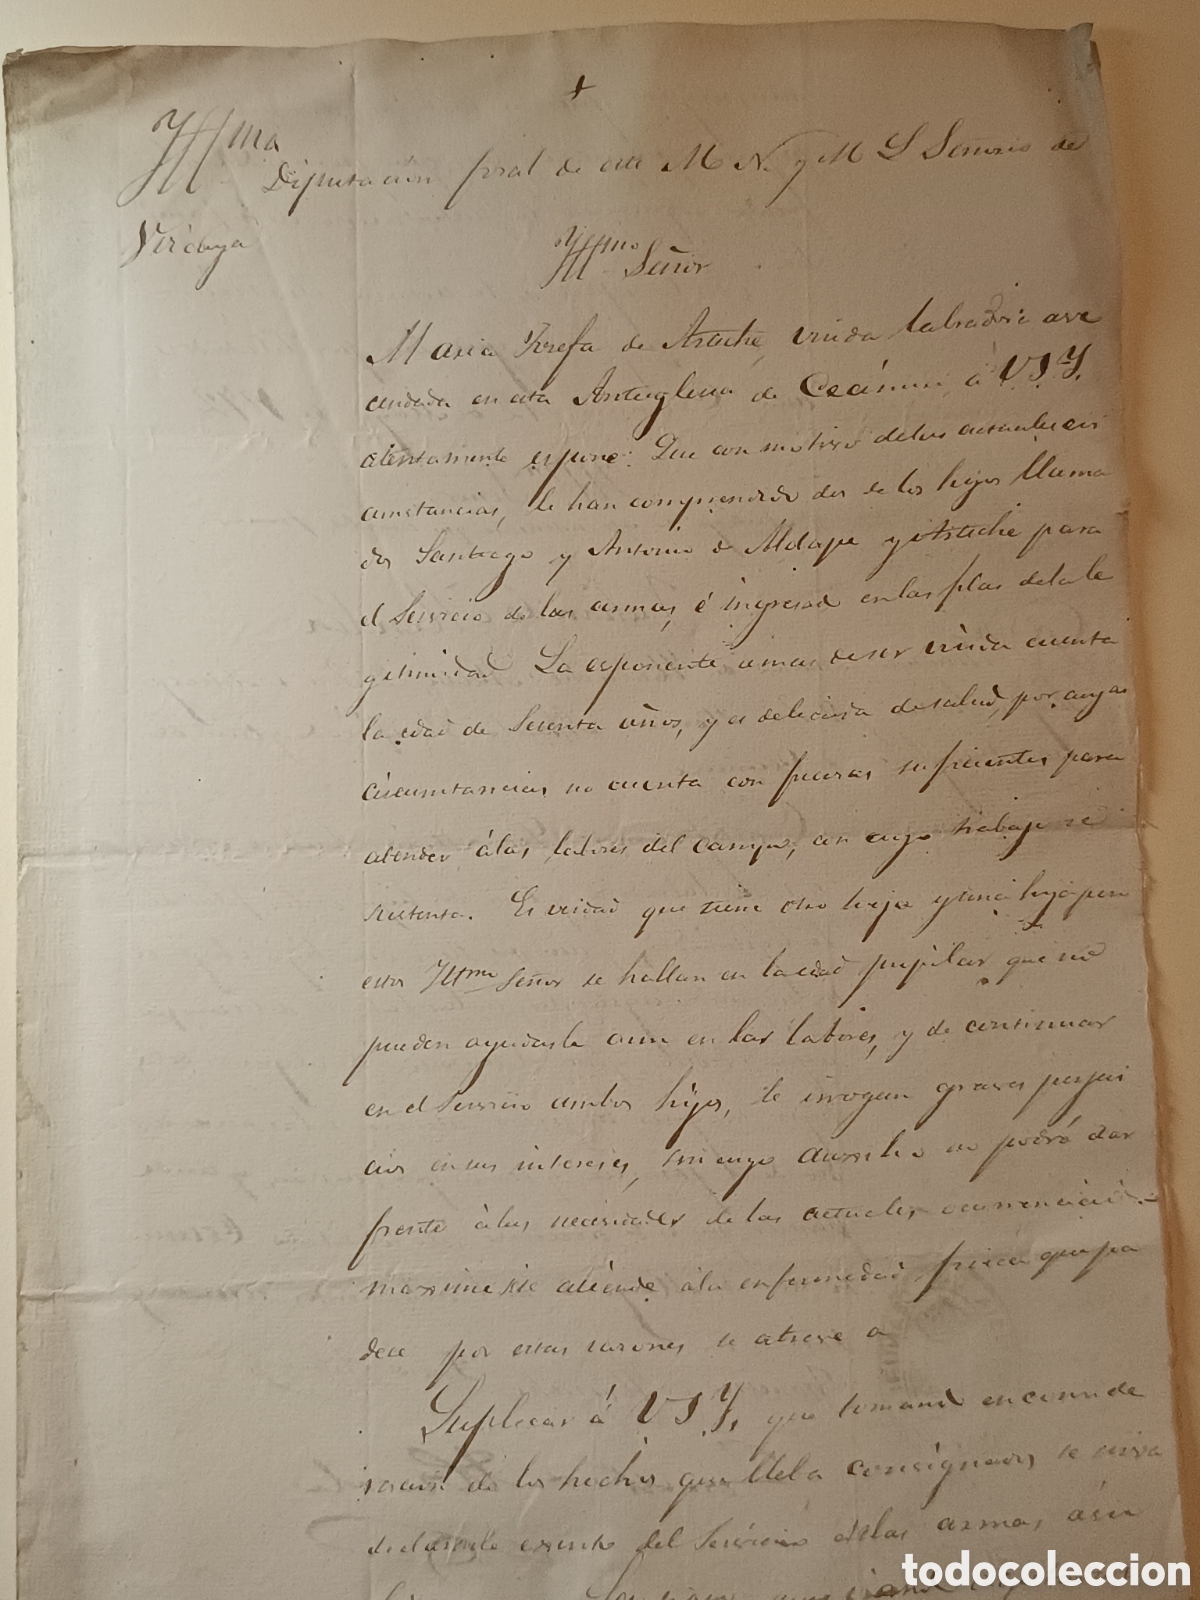 +
Yllma
Diputación foral de este M N. y M L Señorio de
Vizcaya
Yllmo Señor
Maria Josefa de Astuche, viuda labradora ave
cindada en esta Anteyglesia de Ceánuri á V.S.Y.
atentamente espone: Que con motivo de las actuales cir
cunstancias, le han comprendido dos de los hijos llama
dos Santiago y Antonio de Aldape y Astuche para
el Servicio de las armas, é ingresad en las filas de la le
gitimidad. La esponente amas de ser viuda cuenta
la edad de Sesenta años, y es delicada de salud, por cuyas
circumstancias no cuenta con fuerzas suficientes para
atender á las labores del campo, con cuyo trabajo se
sustenta. Es verdad que tiene otro hijo y una hija pero
estos Yltmo Señor se hallan en la edad pupilar que no
pueden ayudarla aun en las labores, y de continuar
en el Servicio ambos hijos, le irrogan graves perjui
cios en sus intereses, sin cuyo auxilio no podrá dar
frente á las necesidades de las actuales ocurrencias.-
maxime se atiende á la enfermedad fisica que pa
dece por estas razones se atreve a
Suplicar á V.S.Y. que tomand en conside
racion de los hechos que lleba consignados, se sirva
declararle exento del Servicio de las armas, á un
todocoleccion